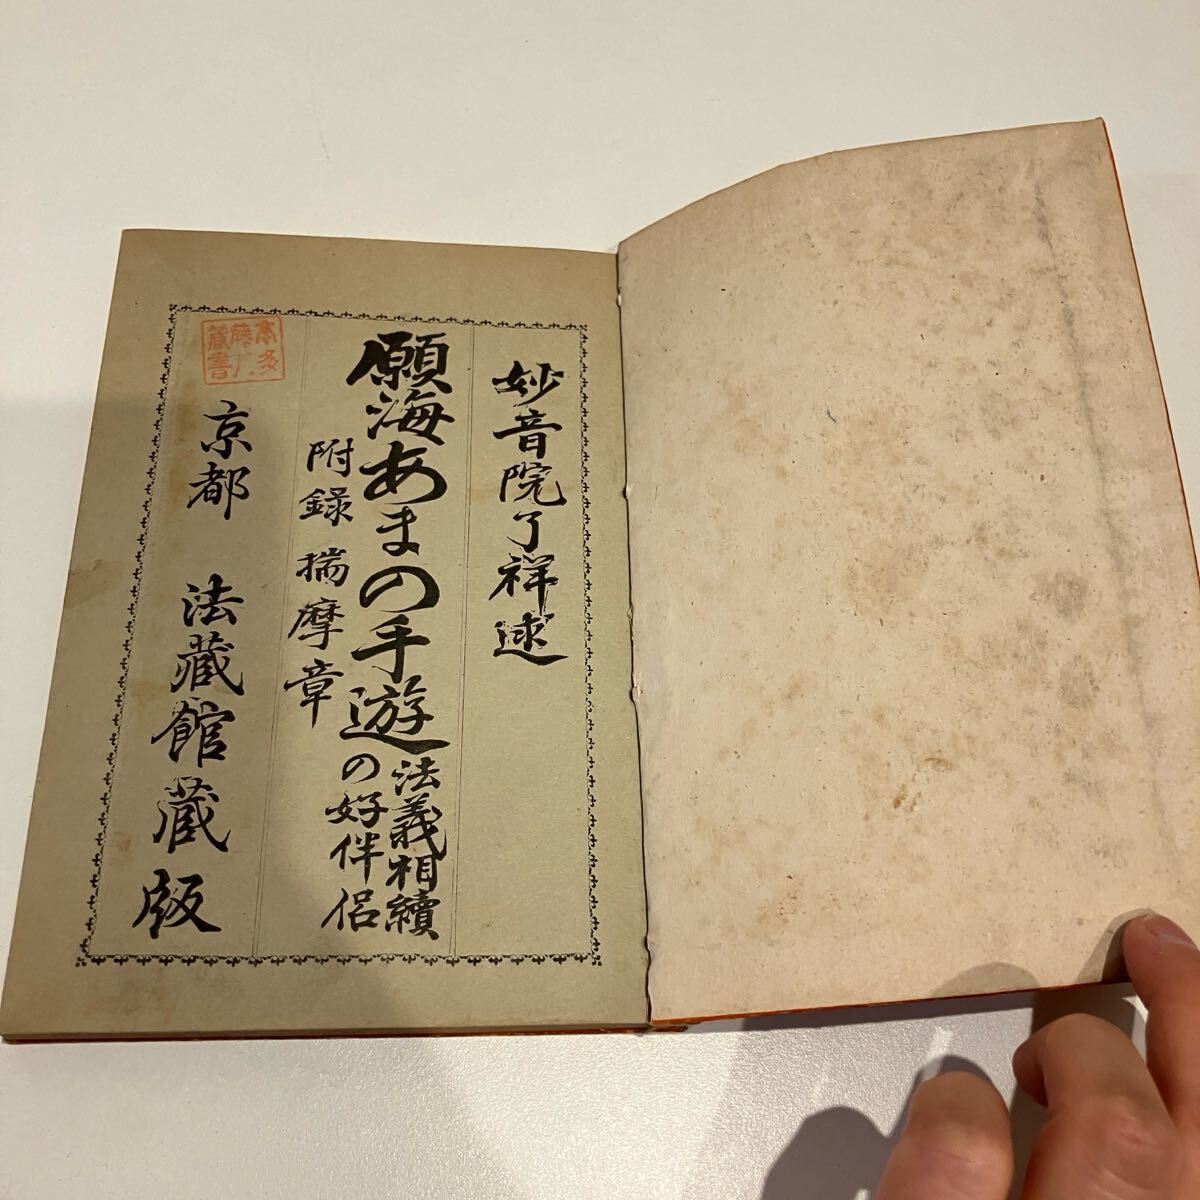 妙音院了祥述
願海あまの手遊
法義相續
の好伴侶
附錄 揣摩章
京都 法藏館藏版
本多
藏書